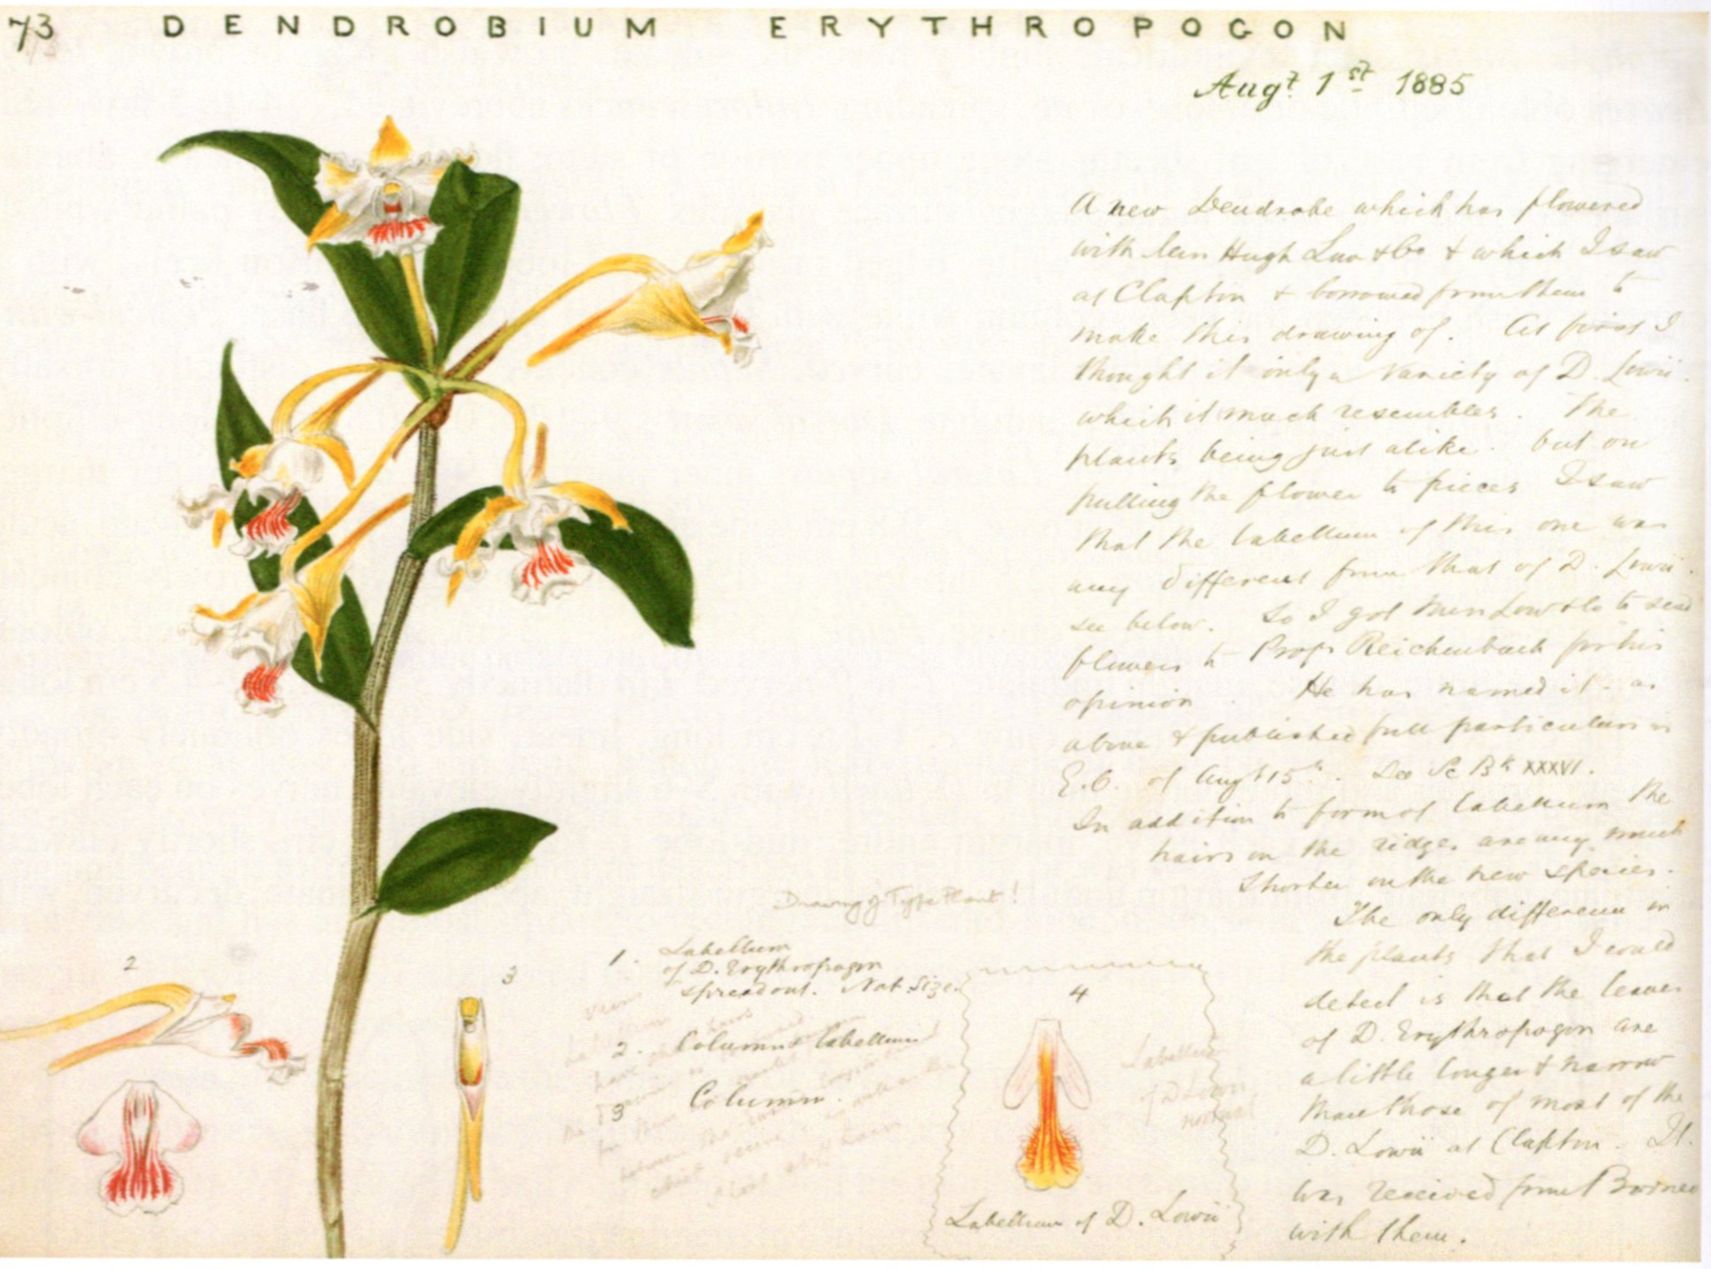 73 DENDROBIUM ERYTHROPOGON
Augt. 1st 1885
A new Dendrobe which has flowered
with Hugh Low & Co & which I saw
at Clapton & borrowed from them to
make this drawing of. At first I
thought it only a variety of D. Lowii.
which it much resembles. The
plants being just alike. but on
pulling the flower to pieces I saw
that the labellum of this one was
very different from that of D. Lowii.
see below. So I got Low & Co to send
flowers to Prof. Reichenbach for his
opinion. He has named it as
above & published full particulars in
G.C. of Augt 15th. See Sc Bk XXXVI.
In addition to form of labellum the
hairs on the ridges are very much
shorter on the new species.
The only difference in
the plants that I could
detect is that the leaves
of D. Erythropogon are
a little longer & narrow
than those of most of the
D. Lowii at Clapton. It
was received from Borneo
with them.
Drawing of Type Plant!
1. Labellum
of D. Erythropogon
spread out. Nat. Size.
2. Column & labellum
3 Column.
2
3
4
Labellum
of D Lowii
normal
Labellum of D. Lowii